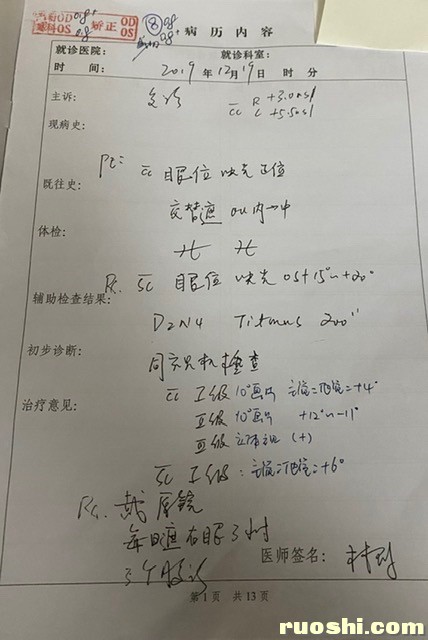 远看OD 0.8+ 矫正OD
OS 0.8 OS
病历内容
就诊医院: 就诊科室:
时 间: 2019年12月19日 时 分
主诉: 复诊 cc R +3.00
L +5.50
现病史:
PE: cc 眼位 映光正位
既往史:
交替遮 OU内→中
体检:
sc 眼位 映光 OS+15°~+20°
辅助检查结果:
D2N4 Titmus 200"
初步诊断:
同视机检查
cc I级 10°画片 主觉=他觉=+4°
治疗意见:
II级 10°画片 +12°~-11°
III级 立体 (+)
sc I级: 主觉=他觉=+6°
戴原镜
每日遮右眼3小时
3个月复诊
医师签名:
第1页 共13页
ruoshi.com